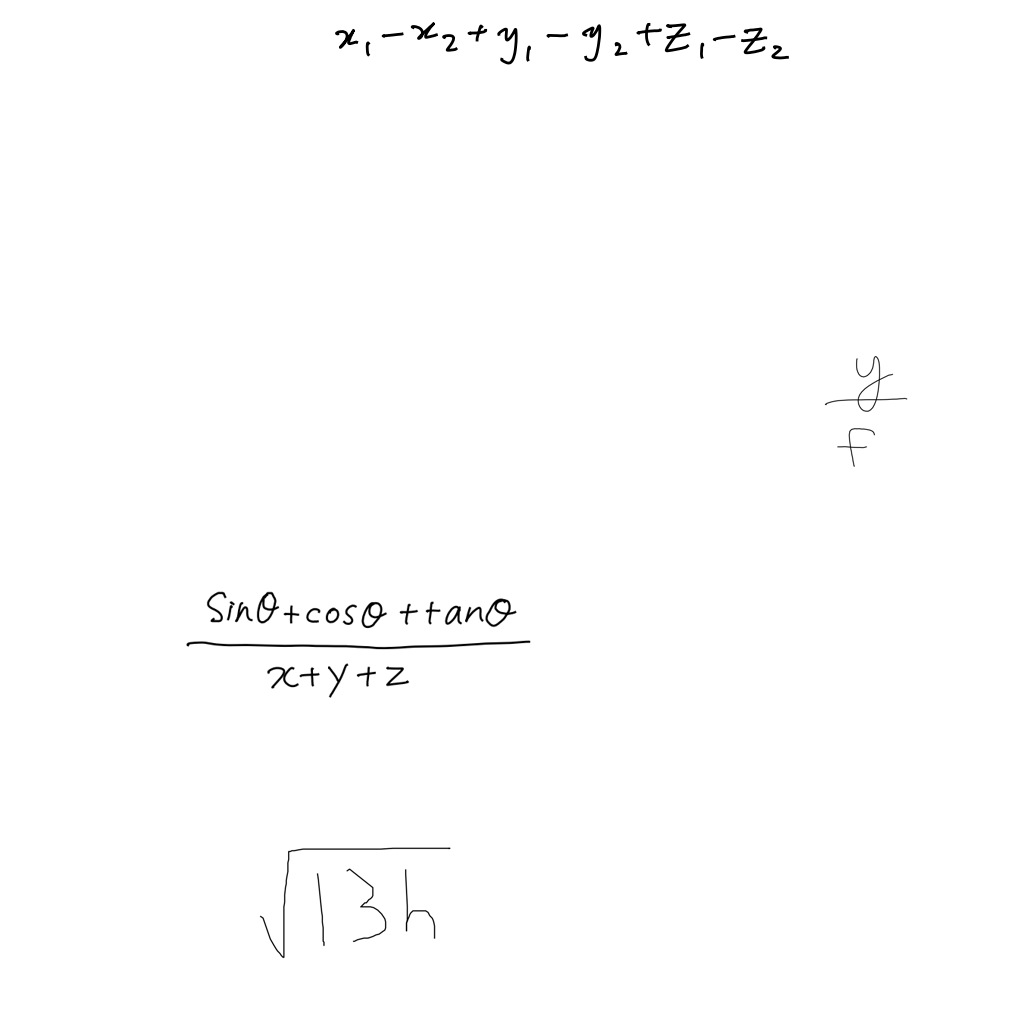 x₁-x₂+y₁-y₂+z₁-z₂
y/F
(sinθ+cosθ+tanθ)/(x+y+z)
√(13h)